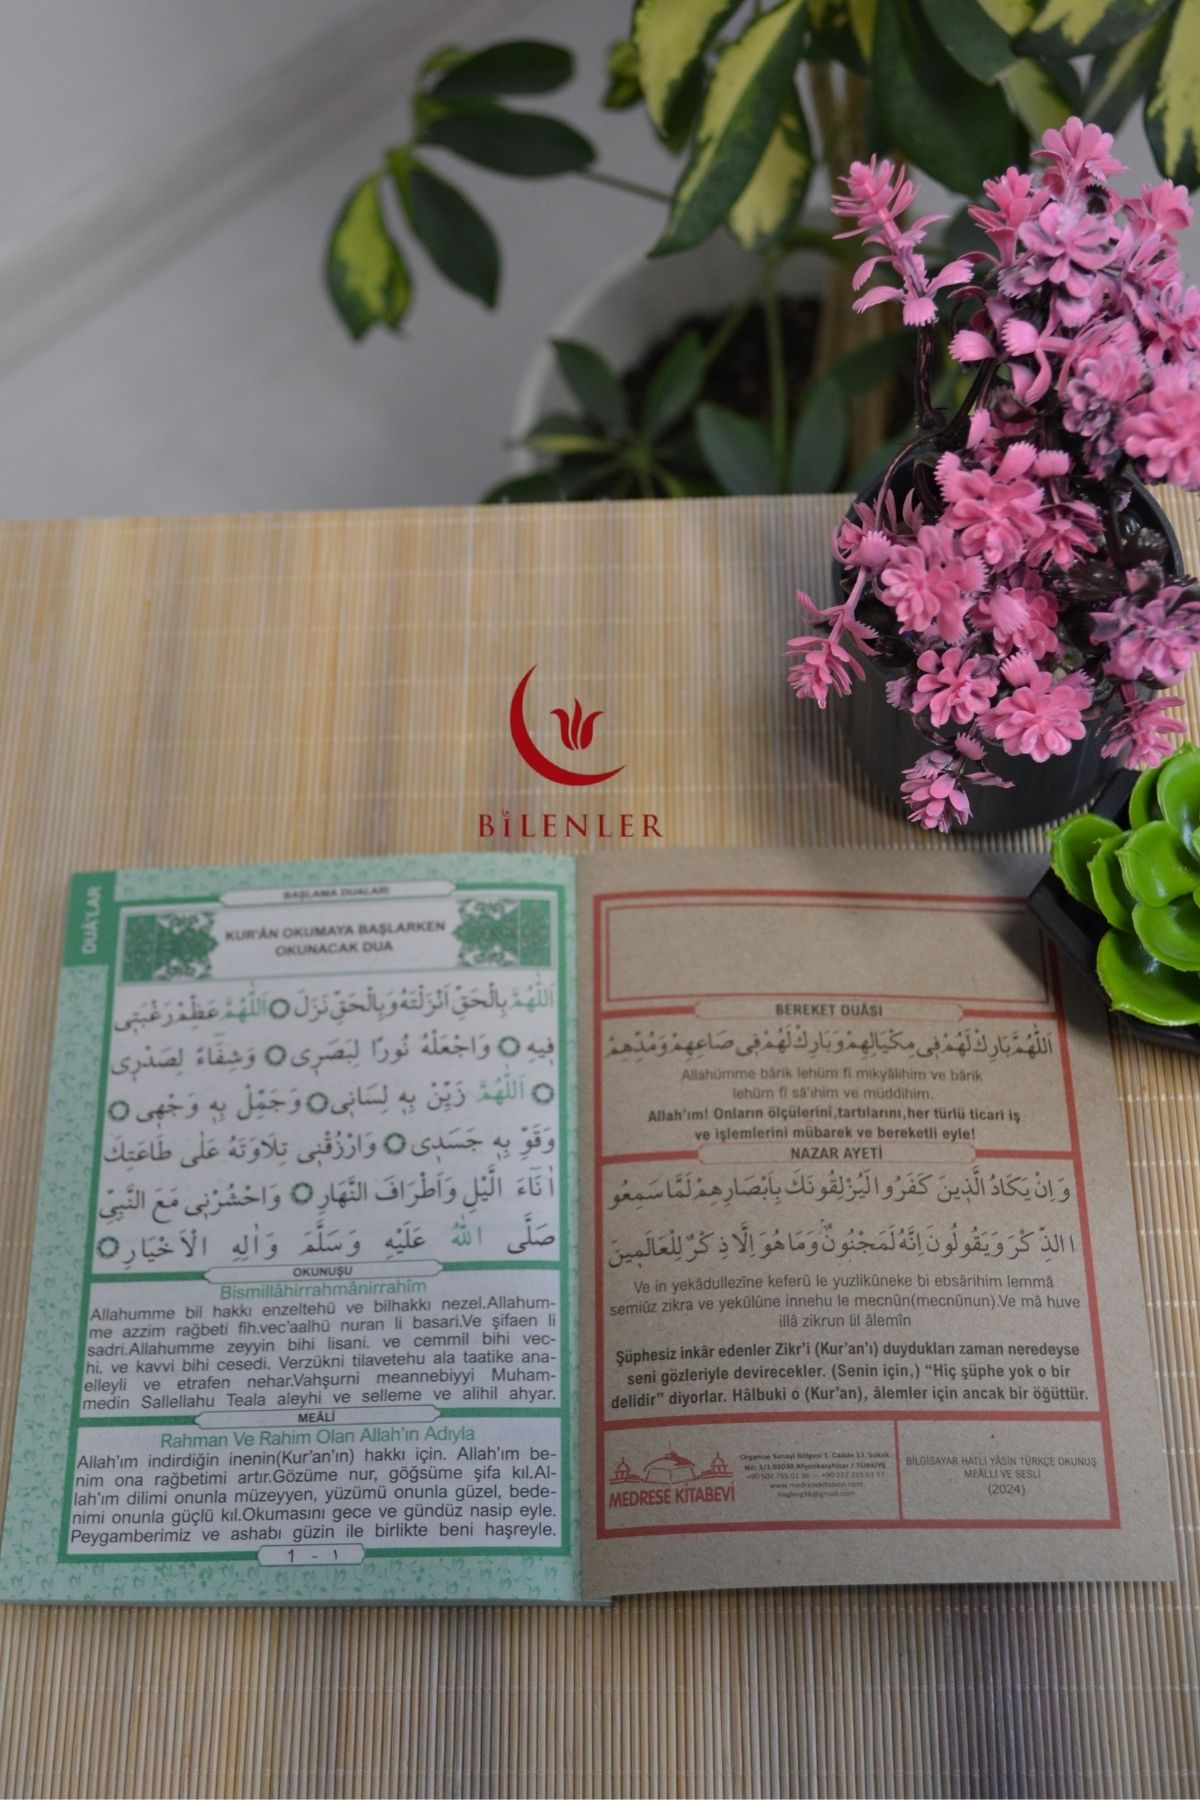 BİLENLER
DUÂ'LAR
BAŞLAMA DUALARI
KUR'ÂN OKUMAYA BAŞLARKEN
OKUNACAK DUA
اَللّٰهُمَّ بِالْحَقِّ اَنْزَلْتَهُ وَبِالْحَقِّ نَزَلَ ۞ اَللّٰهُمَّ عَظِّمْ رَغْبَتٖى
فٖيهِ ۞ وَاجْعَلْهُ نُورًا لِبَصَرٖى ۞ وَشِفَٓاءً لِصَدْرٖى
۞ اَللّٰهُمَّ زَيِّنْ بِهٖ لِسَانٖى ۞ وَجَمِّلْ بِهٖ وَجْهٖى ۞
وَقَوِّ بِهٖ جَسَدٖى ۞ وَارْزُقْنٖى تِلَاوَتَهُ عَلٰى طَاعَتِكَ
اٰنَٓاءَ الَّيْلِ وَاَطْرَافَ النَّهَارِ ۞ وَاحْشُرْنٖى مَعَ النَّبِيِّ
صَلَّى اللّٰهُ عَلَيْهِ وَسَلَّمَ وَاٰلِهِ الْاَخْيَارِ ۞
OKUNUŞU
Bismillâhirrahmânirrahîm
Allahumme bil hakkı enzeltehü ve bilhakkı nezel.Allahum-
me azzim rağbeti fih.vec'aalhü nuran li basari.Ve şifaen li
sadri.Allahumme zeyyin bihi lisani. ve cemmil bihi vec-
hi. ve kavvi bihi cesedi. Verzükni tilavetehu ala taatike ana-
elleyli ve etrafen nehar.Vahşurni meannebiyyi Muham-
medin Sallellahu Teala aleyhi ve selleme ve alihil ahyar.
MEÂLİ
Rahman Ve Rahim Olan Allah'ın Adıyla
Allah'ım indirdiğin inenin(Kur'an'ın) hakkı için. Allah'ım be-
nim ona rağbetimi artır.Gözüme nur, göğsüme şifa kıl.Al-
lah'ım dilimi onunla müzeyyen, yüzümü onunla güzel, bede-
nimi onunla güçlü kıl.Okumasını gece ve gündüz nasip eyle.
Peygamberimiz ve ashabı güzin ile birlikte beni haşreyle.
1 - ١
BEREKET DUÂSI
اَللّٰهُمَّ بَارِكْ لَهُمْ فٖى مِكْيَالِهِمْ وَبَارِكْ لَهُمْ فٖى صَاعِهِمْ وَمُدِّهِمْ
Allahümme bârik lehüm fî mikyâlihim ve bârik
lehüm fî sâ'ıhim ve müddihim.
Allah'ım! Onların ölçülerini,tartılarını,her türlü ticari iş
ve işlemlerini mübarek ve bereketli eyle!
NAZAR AYETİ
وَاِنْ يَكَادُ الَّذٖينَ كَفَرُوا لَيُزْلِقُونَكَ بِاَبْصَارِهِمْ لَمَّا سَمِعُو
ا الذِّكْرَ وَيَقُولُونَ اِنَّهُ لَمَجْنُونٌ وَمَا هُوَ اِلَّا ذِكْرٌ لِلْعَالَمٖينَ
Ve in yekâdullezîne keferû le yuzlikûneke bi ebsârihim lemmâ
semiûz zikra ve yekûlûne innehu le mecnûn(mecnûnun).Ve mâ huve
illâ zikrun lil âlemîn
Şüphesiz inkâr edenler Zikr'i (Kur'an'ı) duydukları zaman neredeyse
seni gözleriyle devirecekler. (Senin için,) "Hiç şüphe yok o bir
delidir" diyorlar. Hâlbuki o (Kur'an), âlemler için ancak bir öğüttür.
MEDRESE KİTABEVİ
Organize Sanayi Bölgesi 1. Cadde 13. Sokak
No: 3/1 03030 Afyonkarahisar / TÜRKİYE
+90 507 765 01 36 — +90 272 215 63 37
www.medresekitabevi.com
BİLGİSAYAR HATLI YÂSİN TÜRKÇE OKUNUŞ
MEÂLLİ VE SESLİ
(2024)